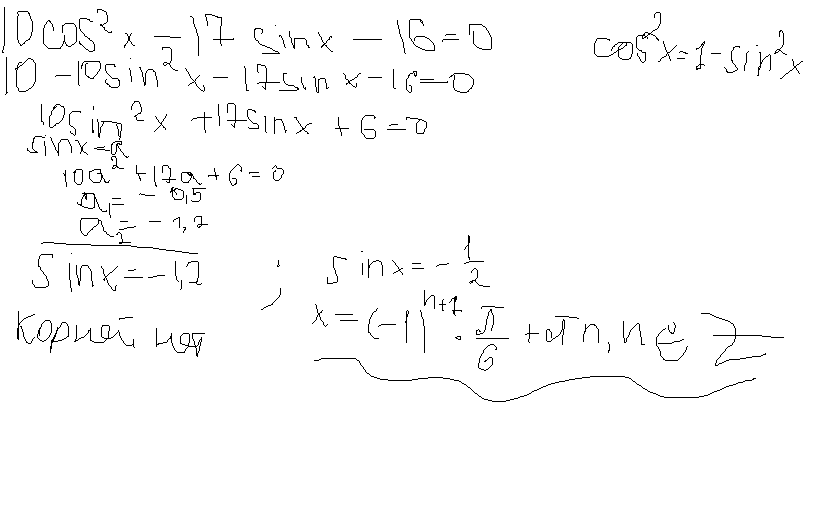 10cos²x - 17 sinx - 16 = 0
cos²x = 1 - sin²x
10 - 10sin²x - 17sinx - 16 = 0
10sin²x + 17sinx + 6 = 0
sinx = a
10a² + 17a + 6 = 0
a₁ = - 0,5
a₂ = - 1,2
sinx = -1,2 ; sinx = - 1/2
Корней нет x = (-1)ⁿ⁺¹ · π/6 + πn, n ∈ Z